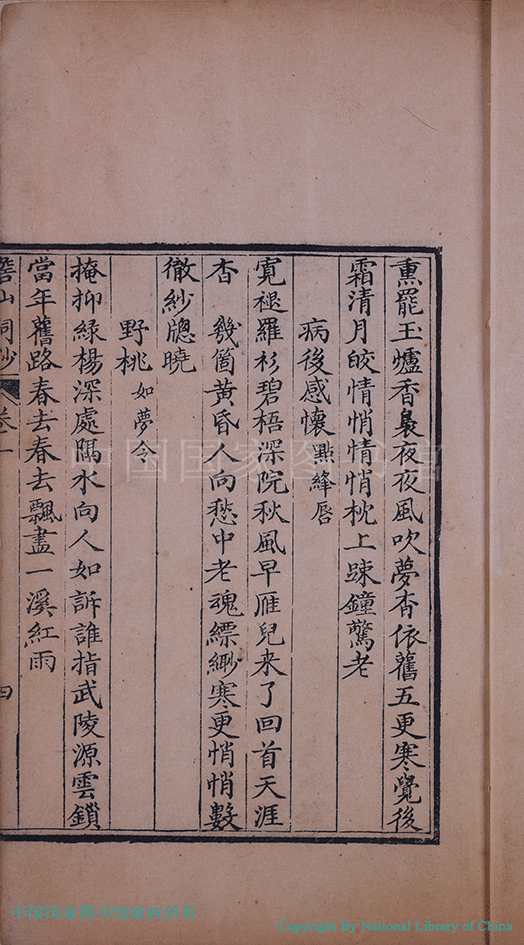 熏罷玉爐香裊夜夜風吹夢杳依舊五更寒覺後
霜清月皎情悄情悄枕上疎鐘驚老
病後感懷 點絳唇
寛褪羅衫碧梧深院秋風早雁兒来了回首天涯
杳　幾箇黃昏人向愁中老魂縹緲寒更悄悄數
徹紗牕曉
野桃 如夢令
掩抑綠楊深處隔水向人如訴誰指武陵源雲鎖
當年舊路春去春去飄盡一溪紅雨
山詞鈔 卷一 四
中国国家图书馆
中国国家图书馆版权所有
Copyright By National Library of China